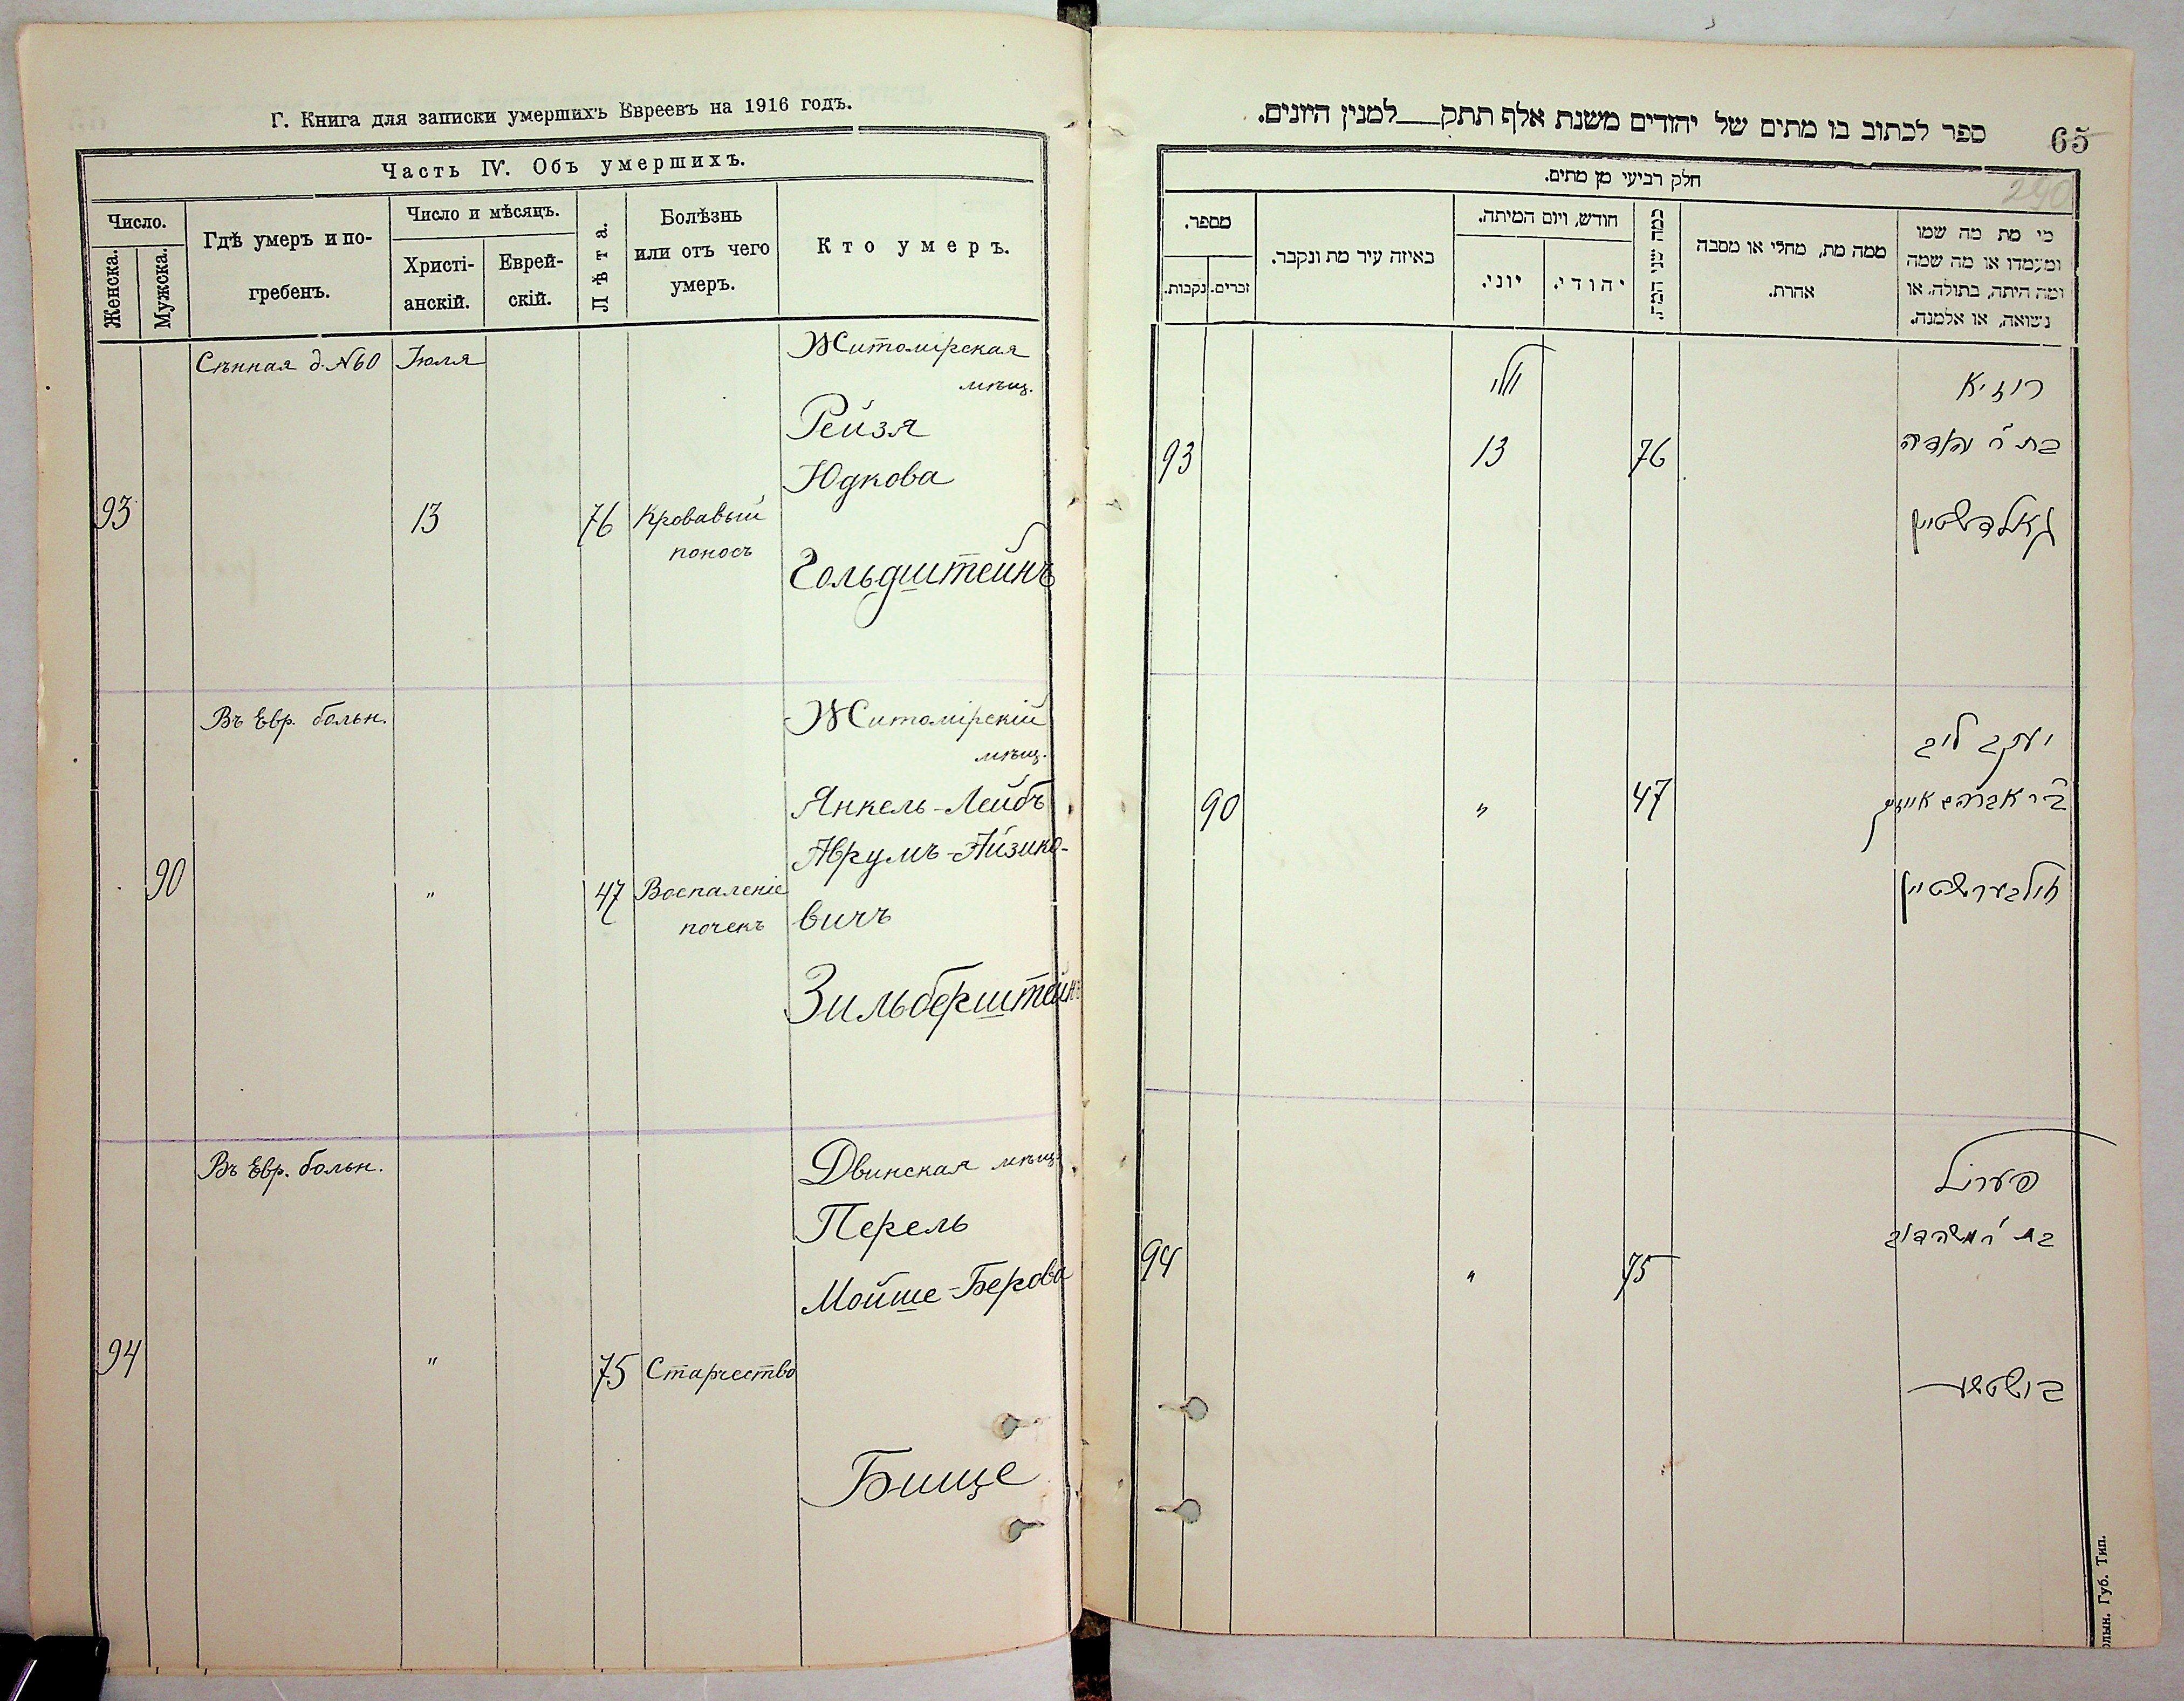 Г. Книга для записки умершихъ Евреевъ на 1916 годъ.
Часть IV. Объ умершихъ.
Число.
Женска.
Мужска.
Гдѣ умеръ и по-
гребенъ.
Число и мѣсяцъ.
Христі-
анскій.
Еврей-
скій.
Лѣта.
Болѣзнь
или отъ чего
умеръ.
Кто умеръ.
Сѣнная д. №60
Іюля
Житомірская
мѣщ.
Рейзя
Юдкова
93
13
76
Кровавый
поносъ
Гольдштейнъ
Въ Евр. больн.
Житомірскій
мѣщ.
Янкель-Лейбъ
Аврумъ-Айзико-
90
"
47
Воспаленіе
почекъ
вичъ
Зильберштейнъ
Въ Евр. больн.
Двинская мѣщ.
Перель
Мойше-Берова
94
"
75
Старчество
Бище
ספר לכתוב בו מתים של יהודים משנת אלף תתק למנין היונים.
65
290
חלק רביעי מן מתים.
מספר.
נקבות.
זכרים.
באיזה עיר מת ונקבר.
חודש, ויום המיתה.
יוני.
יהודי.
כמה שני המת.
ממה מת, מחלי או מסבה
אחרת.
מי מת מה שמו
ומעמדו או מה שמה
ומה היתה, בתולה, או
נשואה, או אלמנה.
יולי
רוזיא
בת ר' יהודה
93
13
76
גאלדשטיין
יעקב ליב
90
"
47
ב"ר אברהם אייזיק
זילבערשטיין
פעריל
94
"
75
Волын. Губ. Тип.